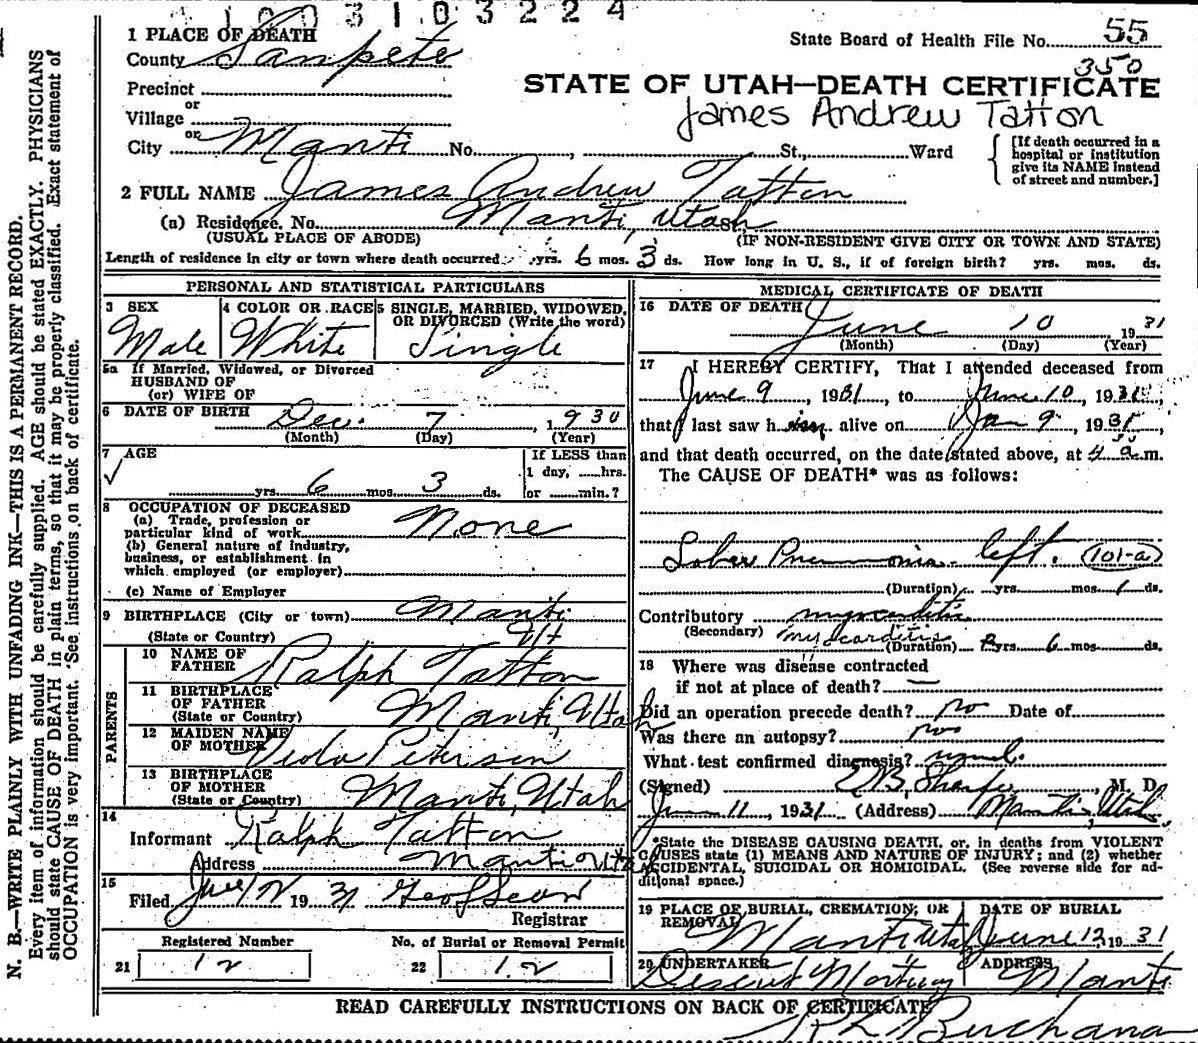 1003103224
1 PLACE OF DEATH
County Sanpete
State Board of Health File No. 55
350
Precinct
or
Village
or
City Manti No. , St., Ward
STATE OF UTAH—DEATH CERTIFICATE
James Andrew Tatton
[If death occurred in a
hospital or institution
give its NAME instead
of street and number.]
2 FULL NAME James Andrew Tatton
(a) Residence. No. Manti, Utah
(USUAL PLACE OF ABODE) (IF NON-RESIDENT GIVE CITY OR TOWN AND STATE)
Length of residence in city or town where death occurred yrs. 6 mos. 3 ds. How long in U. S., if of foreign birth? yrs. mos. ds.
PERSONAL AND STATISTICAL PARTICULARS
3 SEX
Male
4 COLOR OR RACE
White
5 SINGLE, MARRIED, WIDOWED,
OR DIVORCED (Write the word)
Single
5a If Married, Widowed, or Divorced
HUSBAND OF
(or) WIFE OF
6 DATE OF BIRTH Dec. 7, 1930
(Month) (Day) (Year)
7 AGE
yrs. 6 mos. 3 ds.
If LESS than
1 day, hrs.
or min.?
8 OCCUPATION OF DECEASED
(a) Trade, profession or
particular kind of work None
(b) General nature of industry,
business, or establishment in
which employed (or employer)
(c) Name of Employer
9 BIRTHPLACE (City or town) Manti
(State or Country) Ut
PARENTS
10 NAME OF
FATHER Ralph Tatton
11 BIRTHPLACE
OF FATHER
(State or Country) Manti, Utah
12 MAIDEN NAME
OF MOTHER Veda Petersen
13 BIRTHPLACE
OF MOTHER
(State or Country) Manti, Utah
14
Informant Ralph Tatton
Address Manti Utah
15
Filed 1931
Registrar
Registered Number
21 12
No. of Burial or Removal Permit
22 12
MEDICAL CERTIFICATE OF DEATH
16 DATE OF DEATH
June 10 1931
(Month) (Day) (Year)
17 I HEREBY CERTIFY, That I attended deceased from
June 9, 1931, to June 10, 1931,
that I last saw him alive on Jun 9, 1931,
and that death occurred, on the date stated above, at 4 a.m.
The CAUSE OF DEATH* was as follows:
Lobar Pneumonia - left. (101-a)
(Duration) yrs. mos. 1 ds.
Contributory myocarditis
(Secondary) myocarditis
(Duration) yrs. 6 mos. ds.
18 Where was disease contracted
if not at place of death? —
Did an operation precede death? no Date of
Was there an autopsy? no
What test confirmed diagnosis? usual.
(Signed) , M. D.
June 11, 1931 (Address) Manti, Utah.
*State the DISEASE CAUSING DEATH, or, in deaths from VIOLENT
CAUSES state (1) MEANS AND NATURE OF INJURY; and (2) whether
ACCIDENTAL, SUICIDAL OR HOMICIDAL. (See reverse side for ad-
ditional space.)
19 PLACE OF BURIAL, CREMATION, OR
REMOVAL
Manti Utah
DATE OF BURIAL
June 12, 1931
20 UNDERTAKER
Mortuary
ADDRESS
Manti
READ CAREFULLY INSTRUCTIONS ON BACK OF CERTIFICATE
Buchanan
N. B.—WRITE PLAINLY WITH UNFADING INK—THIS IS A PERMANENT RECORD.
Every item of information should be carefully supplied. AGE should be stated EXACTLY. PHYSICIANS
should state CAUSE OF DEATH in plain terms, so that it may be properly classified. Exact statement of
OCCUPATION is very important. See instructions on back of certificate.